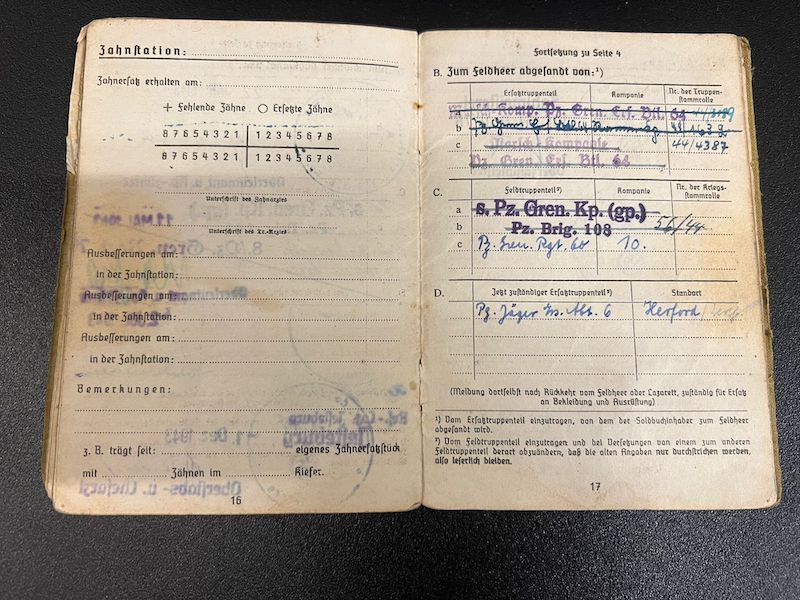 Zahnstation:
Zahnersatz erhalten am:
+ Fehlende Zähne ○ Ersetzte Zähne
8 7 6 5 4 3 2 1 1 2 3 4 5 6 7 8
8 7 6 5 4 3 2 1 1 2 3 4 5 6 7 8
Unterschrift des Zahnarztes
Unterschrift des Tr.-Arztes
Ausbesserungen am:
in der Zahnstation:
Ausbesserungen am:
in der Zahnstation:
Ausbesserungen am:
in der Zahnstation:
Bemerkungen:
z. B. trägt seit: eigenes Zahnersatzstück
mit Zähnen im Kiefer.
16
Fortsetzung zu Seite 4
B. Zum Feldheer abgesandt von:¹)
Ersatztruppenteil Kompanie Nr. der Truppen-
stammrolle
a Komp. Pz. Gren. Ers. Btl. 64
b
c Marsch-Kompanie 44/4387
Pz. Gren. Ers. Btl. 64
C. Feldtruppenteil²) Kompanie Nr. der Kriegs-
stammrolle
a s. Pz. Gren. Kp. (gp.)
b Pz. Brig. 108 56/44
c Pz. Gren. Rgt. 60 10.
D. Jetzt zuständiger Ersatztruppenteil²) Standort
Pz. Jäger Ers. Abt. 6 Herford
(Meldung dortselbst nach Rückkehr vom Feldheer oder Lazarett, zuständig für Ersatz
an Bekleidung und Ausrüstung)
¹) Vom Ersatztruppenteil einzutragen, von dem der Soldbuchinhaber zum Feldheer
abgesandt wird.
²) Vom Feldtruppenteil einzutragen und bei Versetzungen von einem zum anderen
Feldtruppenteil derart abzuändern, daß die alten Angaben nur durchstrichen werden,
also leserlich bleiben.
17